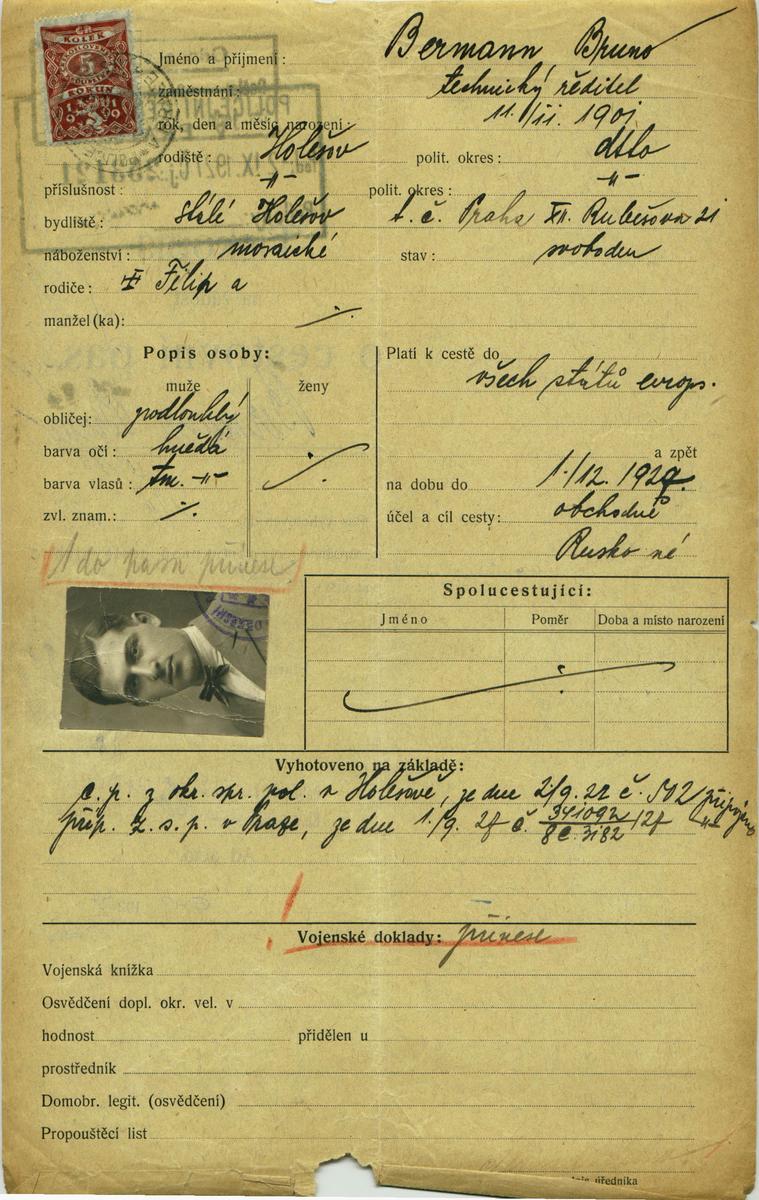 KOLEK
5
KORUN
1919
Jméno a příjmení: Bermann Bruno
zaměstnání: technický ředitel
rok, den a měsíc narození: 11./II. 1901
rodiště: Holešov polit. okres: dtto
příslušnost: -"- polit. okres: -"-
bydliště: stálé Holešov t. č. Praha XII. Rubešova 21
náboženství: mosaické stav: svoboden
rodiče: Filip a
manžel(ka): ./.
Popis osoby: Platí k cestě do
muže ženy všech států evrops.
obličej: podlouhlý
barva očí: hnědá ./. a zpět
barva vlasů: tm. -"- na dobu do 1./12. 1929.
zvl. znam.: ./. účel a cíl cesty: obchodně
Rusko né
1 do pasu přinese
Spolucestující:
Jméno Poměr Doba a místo narození
./.
Vyhotoveno na základě:
c. p. z okr. spr. pol. v Holešově, ze dne 2/9. 27 č. 502 připojeno
přip. z. s. p. v Praze, ze dne 1./9. 27 č. 341092/8C. 3182 /27 -"-
Vojenské doklady: přinese
Vojenská knížka
Osvědčení dopl. okr. vel. v
hodnost přidělen u
prostředník
Domobr. legit. (osvědčení)
Propouštěcí list
úředníka